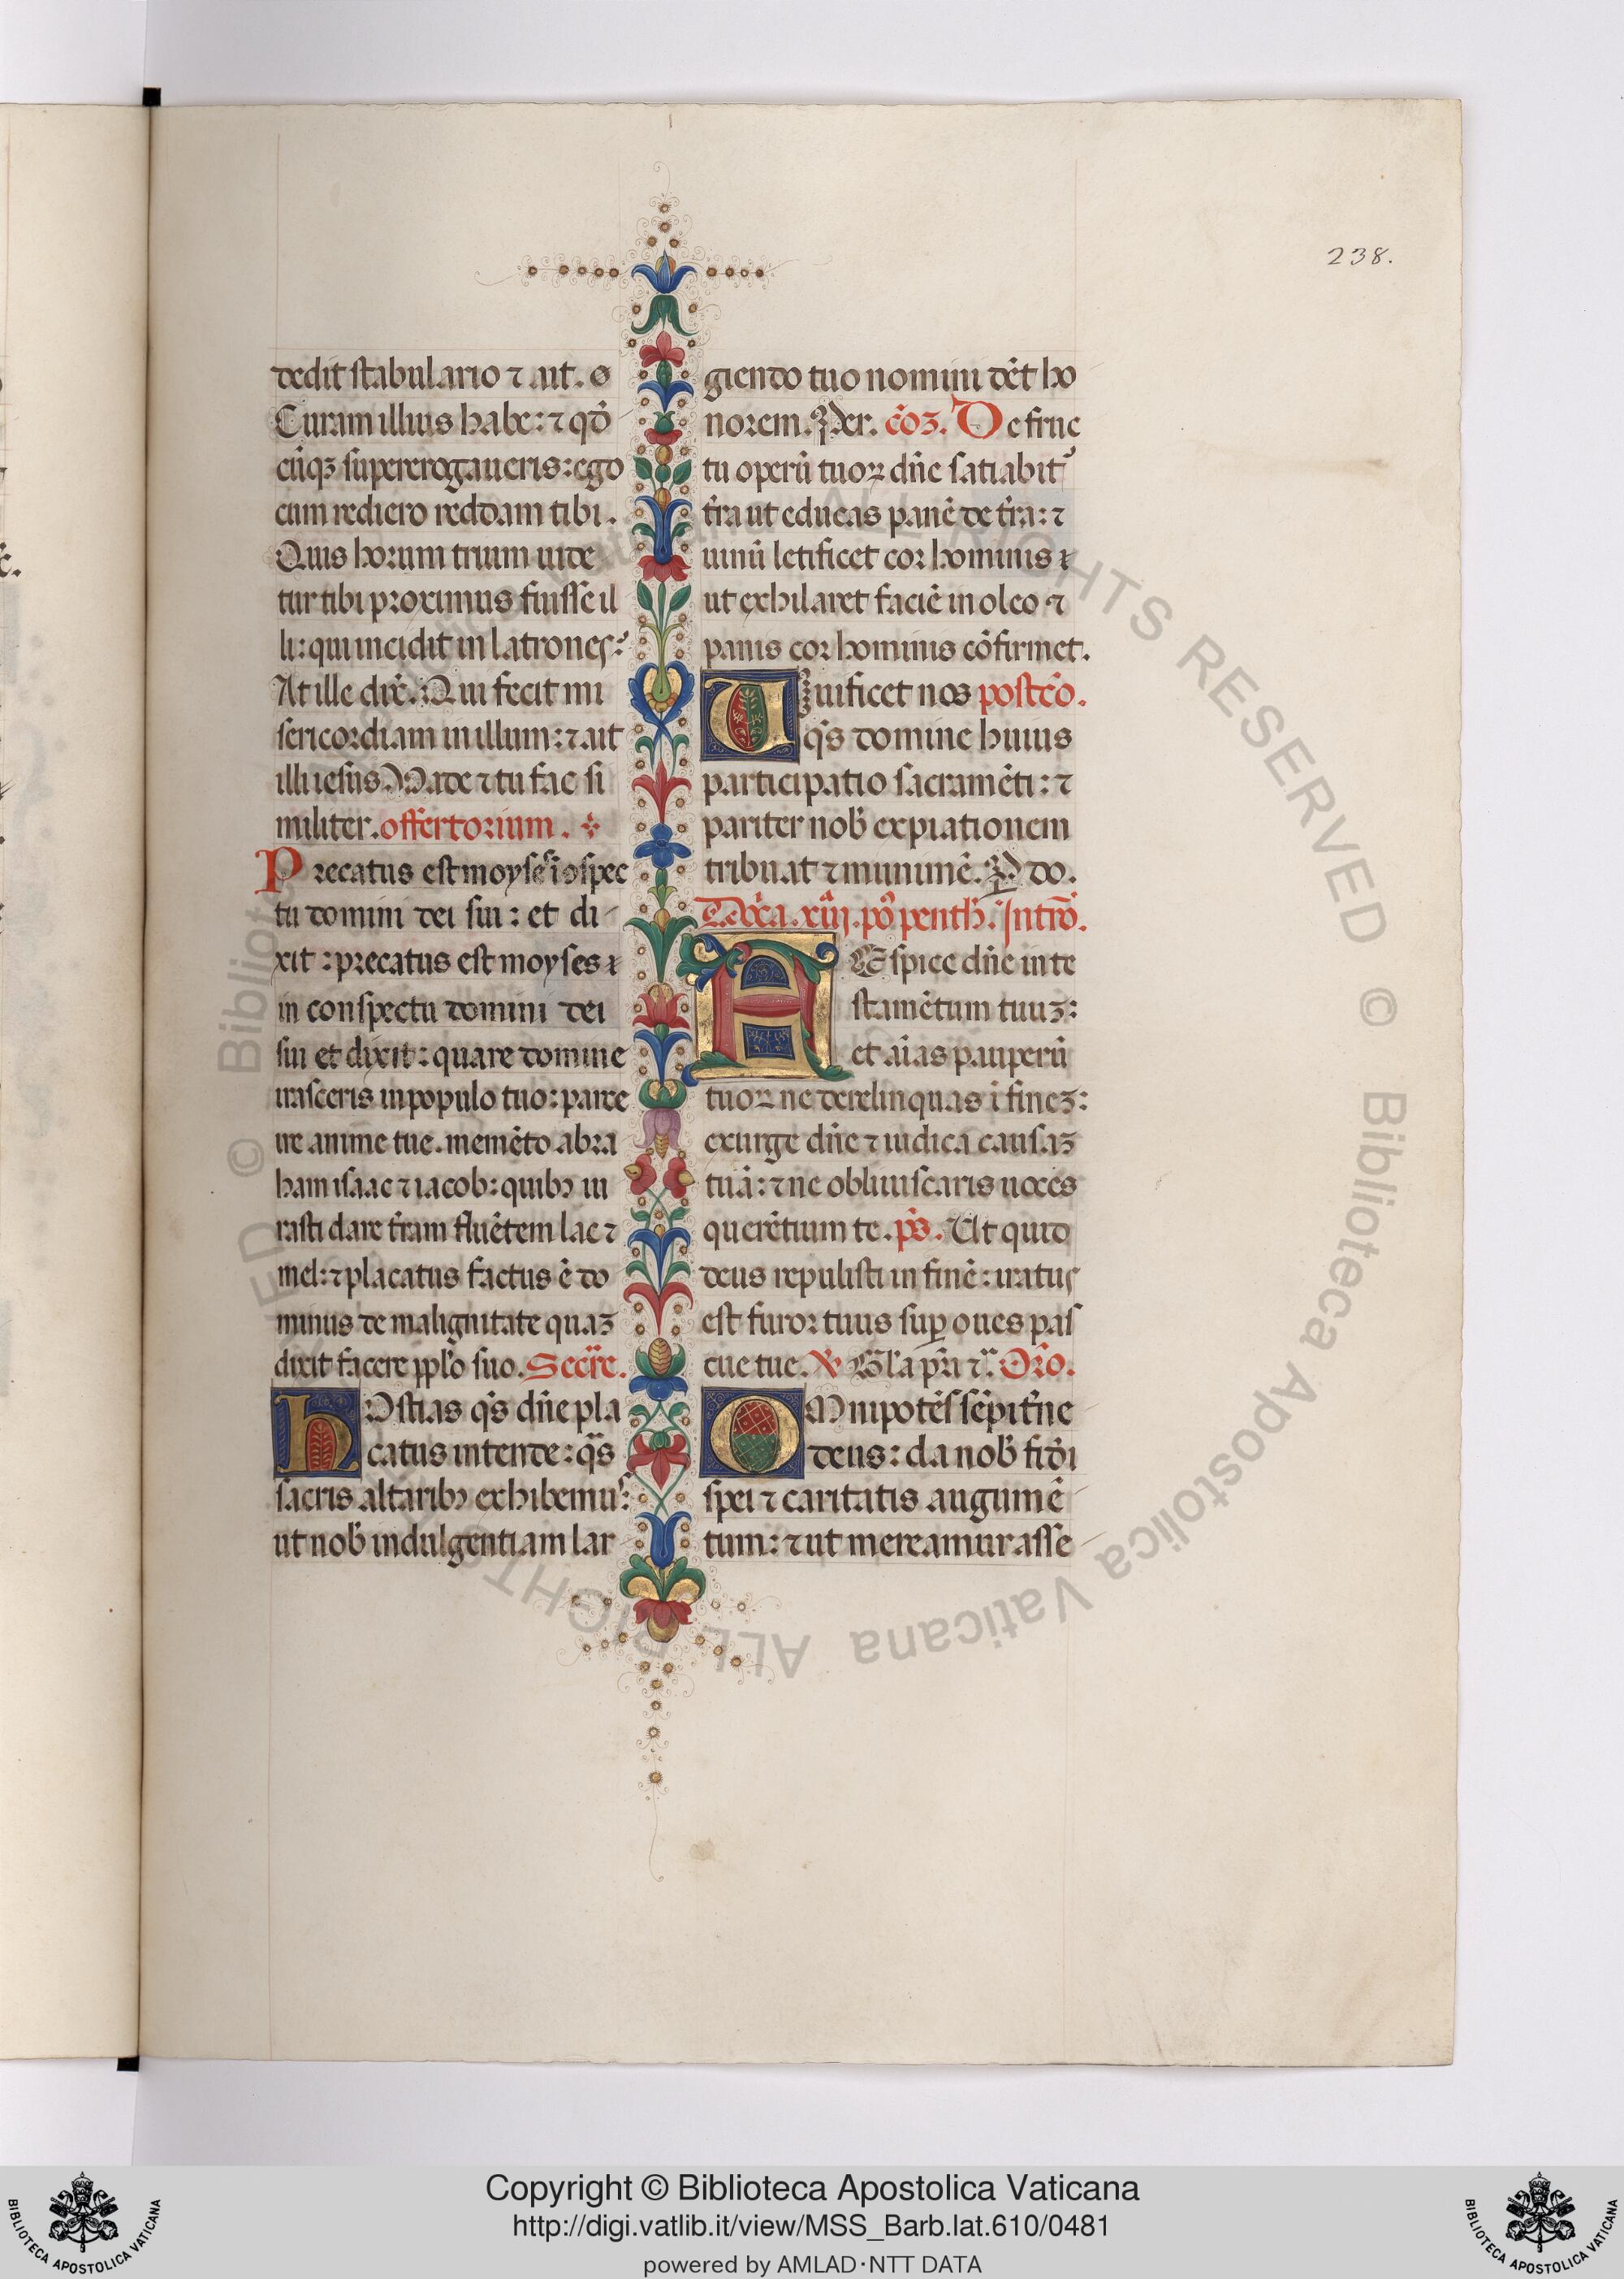 238.
dedit stabulario ⁊ ait.
Curam illius habe: ⁊ qđ
cūqꝫ supererogaueris: ego
cum rediero reddam tibi.
Quis horum trium uide
tur tibi proximus fuisse il
li: qui incidit in latrones?
At ille dix̄. Qui fecit mi
sericordiam in illum: ⁊ ait
illi iesus Uade ⁊ tu fac si
militer. offertorium.
Precatus est moyses ī ɔspec
tu domini dei sui: et di
xit: precatus est moyses
in conspectu domini dei
sui et dixit: quare domine
irasceris in populo tuo: parce
ire anime tue. memēto abra
ham isaac ⁊ iacob: quibꝫ iu
rasti dare t̄ram fluētem lac ⁊
mel: ⁊ placatus factus ē do
minus de malignitate quaꝫ
dixit facere pplo suo. Secr̄e.
hOstias q̄s dn̄e pla
catus intende: q̄s
sacris altaribꝫ exhibemus:
ut nob̄ indulgentiam lar
giendo tuo nomini dēt ho
norem. Per. cōꝫ. De fruc
tu operū tuoꝝ dn̄e satiabit᷑
t̄ra ut educas panē de t̄ra: ⁊
uinū letificet cor hominis
ut exhilaret faciē in oleo ⁊
panis cor hominis cōfirmet.
Uiuificet nos postcō.
q̄s domine huius
participatio sacramēti: ⁊
pariter nob̄ expiationem
tribuat ⁊ munimē. P do.
Dn̄ica. xiij. pō penth̄. Intrō.
REspice dn̄e in te
stamētum tuuꝫ:
et aīas pauperū
tuoꝝ ne derelinquas ī fineꝫ:
exurge dn̄e ⁊ iudica causaꝫ
tuā: ⁊ ne obliuiscaris uoces
querētium te. p̄s. Ut quid
deus repulisti in finē: iratus
est furor tuus suꝑ oues pas
cue tue. ℣ Gl̄a pr̄i ⁊c̄. Or̄o.
OMnipotēs sēpit̄ne
deus: da nob̄ fid̄i
spei ⁊ caritatis augumē
tum: ⁊ ut mereamur asse
© Biblioteca Apostolica Vaticana ALL RIGHTS RESERVED
BIBLIOTECA APOSTOLICA VATICANA
Copyright © Biblioteca Apostolica Vaticana
http://digi.vatlib.it/view/MSS_Barb.lat.610/0481
powered by AMLAD·NTT DATA
BIBLIOTECA APOSTOLICA VATICANA